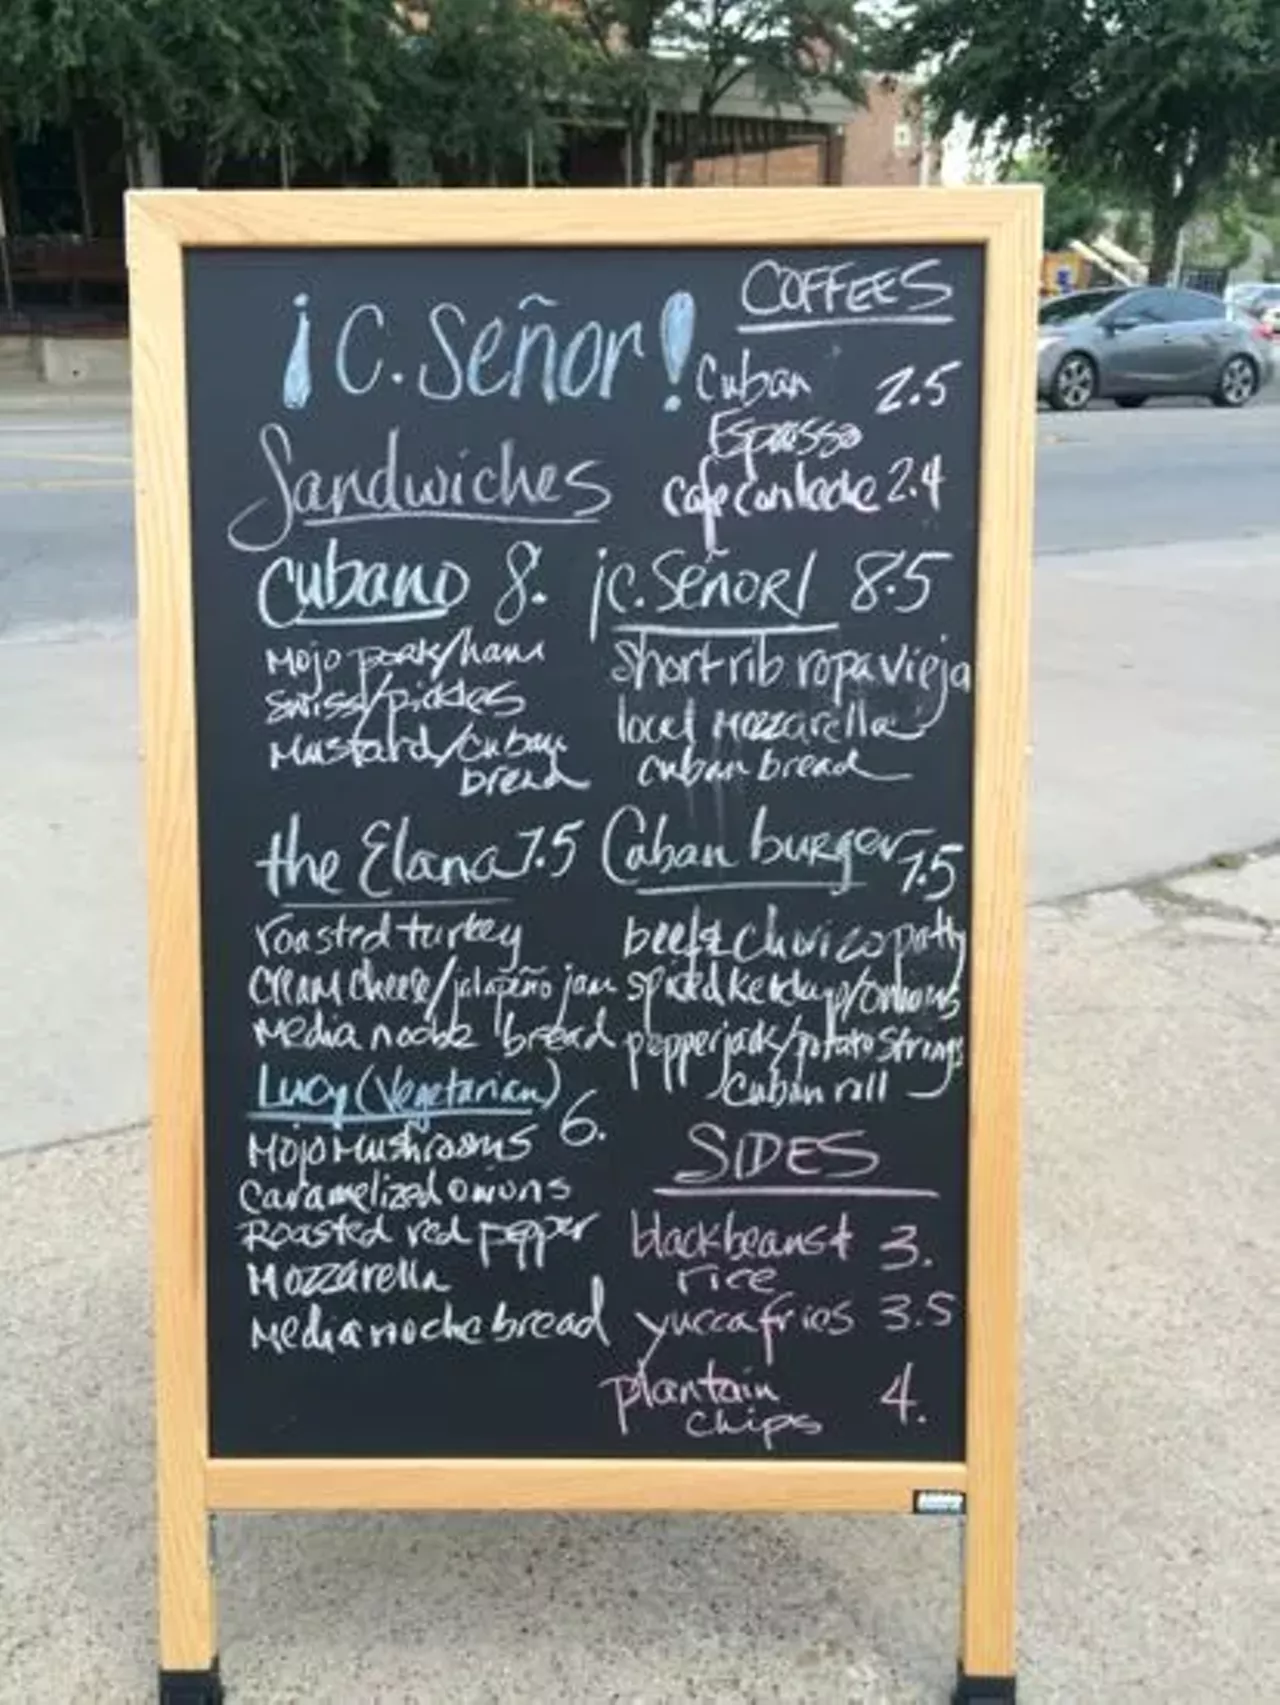 ¡C. Señor!
COFFEES
Cuban 2.5
Espresso
cafe con leche 2.4
Sandwiches
Cubano 8.
Mojo pork/ham
swiss/pickles
Mustard/cuban
bread
¡C. SEÑOR! 8.5
Short rib ropa vieja
local Mozzarella
cuban bread
the Elana 7.5
roasted turkey
cream cheese/jalapeño jam
Media noche bread
Cuban burger 7.5
beef & chorizo patty
spiced ketchup/onions
pepperjack/potato strings
Cuban roll
Lucy (Vegetarian) 6.
Mojo Mushrooms
Caramelized onions
Roasted red pepper
Mozzarella
Media noche bread
SIDES
black beans & 3.
rice
yucca fries 3.5
plantain 4.
chips